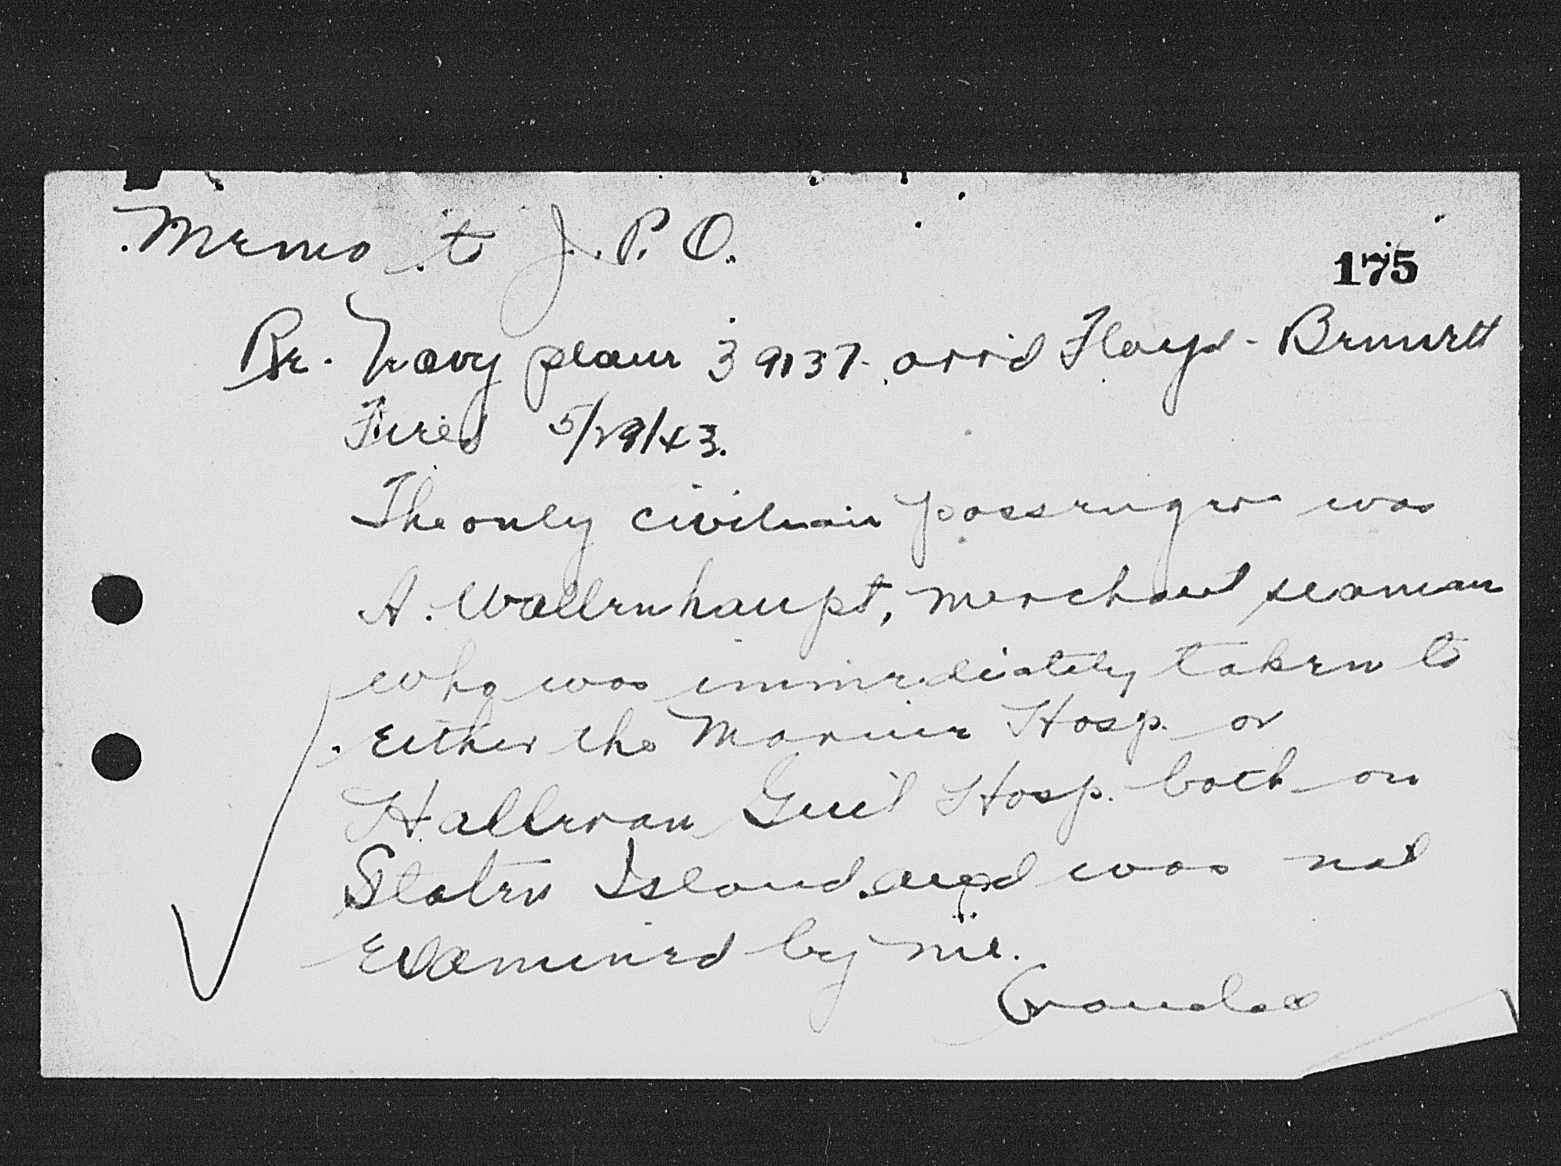 Memo to J. P. O.
175
Re. Navy plane 39137 arr'd Floyd-Bennett
Field 5/29/43.
The only civilian passenger was
A. Wallenhaupt, merchant seaman
who was immediately taken to
either the Marine Hosp. or
Halloran Gen'l Hosp. both on
Staten Island and was not
examined by me.